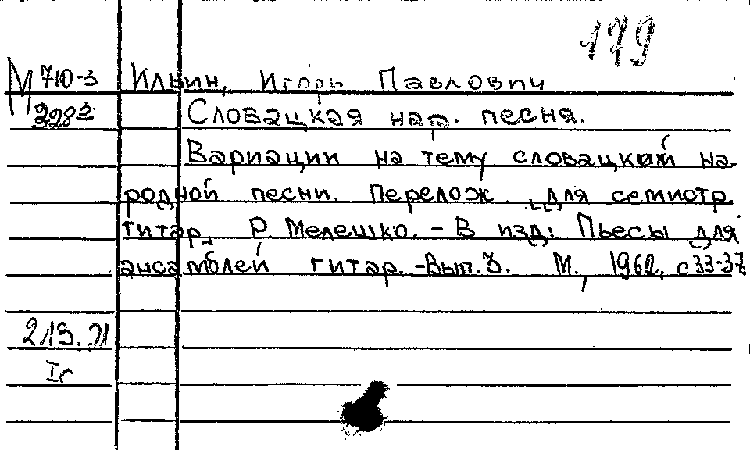 179
М 710-3 Ильин, Игорь Павлович
Словацкая нар. песня.
Вариации на тему словацкой на-
родной песни. Перелож. для семистр.
гитар. Р. Мелешко. - В изд: Пьесы для
ансамблей гитар. - Вып. 3. М., 1962, с 33-37